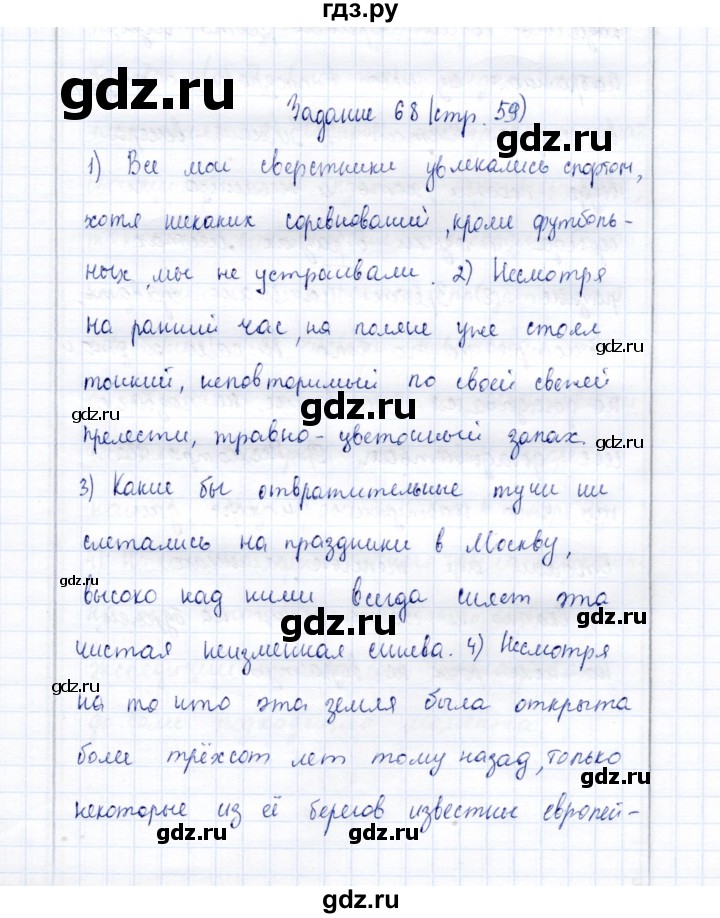 гдз.ру
gdz.ru
Задание 68 (стр. 59)
gdz.ru
1) Все мои сверстники увлекались спортом,
хотя никаких соревнований, кроме футболь-
ных, мы не устраивали. 2) Несмотря
на ранний час, на поляне уже стоял
gdz.ru
тонкий, неповторимый по своей свежей
gdz.ru
gdz.ru
прелести, травно-цветочный запах.
gdz.ru
3) Какие бы отвратительные тучи ни
слетались на праздники в Москву,
gdz.ru
высоко над ними всегда сияет эта
gdz.ru
gdz.ru
чистая неизменная синева. 4) Несмотря
gdz.ru
на то что эта земля была открыта
более трёхсот лет тому назад, только
gdz.ru
некоторые из её берегов известны европей-
gdz.ru
gdz.ru
gdz.ru